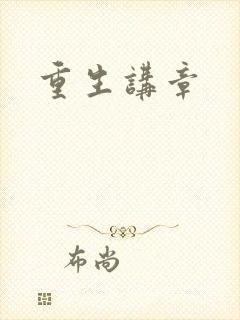 重生講章
布尚